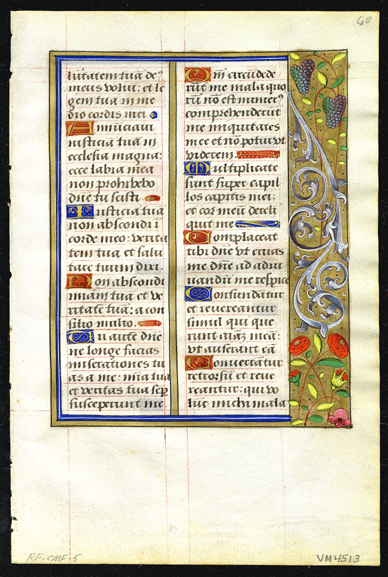 60
lūtatem tuā deꝰ
meus volui: et le
gem tuā in me
dio cordis mei
Annūciaui
iusticiā tuā in
ecclesia magna:
ecce labia mea
non prohibebo
dñe tu scisti
Iusticiā tuā
non abscondi ī
corde meo: verita
tem tuā et salu
tare tuum dixi
Non abscondi
miam tuā et ve
ritatē tuā: a con
silio multo
Tu autē dñe
ne longe facias
miserationes tu
as a me: mia tua
et veritas tua sēp
susceperunt me
Qm̄ circūdede
rūt me mala quo
rū nō est numerꝰ
comprehenderūt
me iniquitates
mee et nō potui vt
viderem
Multiplicate
sunt super capil
los capitis mei:
et cor meū dereli
quit me
Complaceat
tibi dñe vt eruas
me dñe ad adiu
uandū me respice
Confundātur
et reuereantur
simul qui que
runt aīaz meā:
vt auferant eā
Conuertātur
retrorsū et reue
reantur: qui vo
lūt michi mala
RF-CMF-5
VM4513